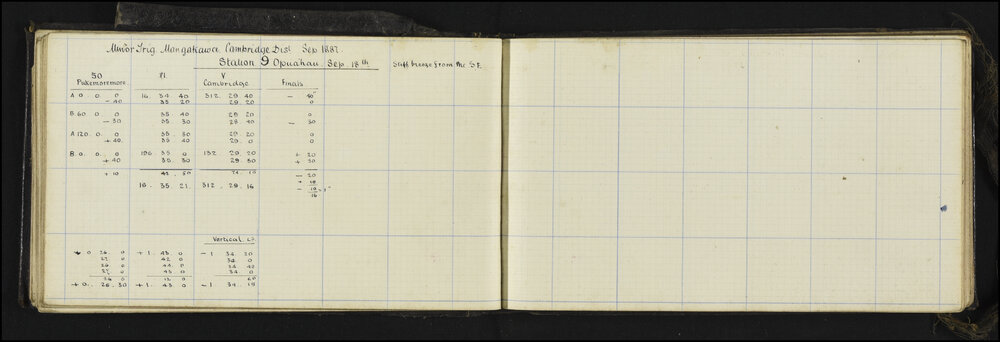 Minor Trig. Mangakawa. Cambridge Dist Sep 1887.
Station 9 Opuahau. Sep. 18th Stiff breeze from the S.E.
50 V
Pukemoremore. Cambridge Finals
A 0. 0. 0 16. 34 40 312. 29. 40 - 40
- 40 35 20 29. 20 0
B. 60 0. 0 35. 40 29 20 0
- 30 35. 30 28 40 - 30
A 120. 0. 0 35 30 29. 20 0
+ 40. 35 40 29. 0 0
B 0. 0. 0 196. 35 0 132. 29. 20 + 20
+ 40 35. 30 29. 30 + 30
+ 10 - 20
16. 35 21. 312. 29. 16 + 10
16
Vertical Ls
+ 0 26. 0 + 1. 43 0 - 1 34. 20
27. 0 42 0 34. 0
26. 0 44. 0 34 40
27. 0 43 0 34. 0
26 0 12. 0 60
+ 0. 26. 30 + 1. 43 0 - 1 34. 15